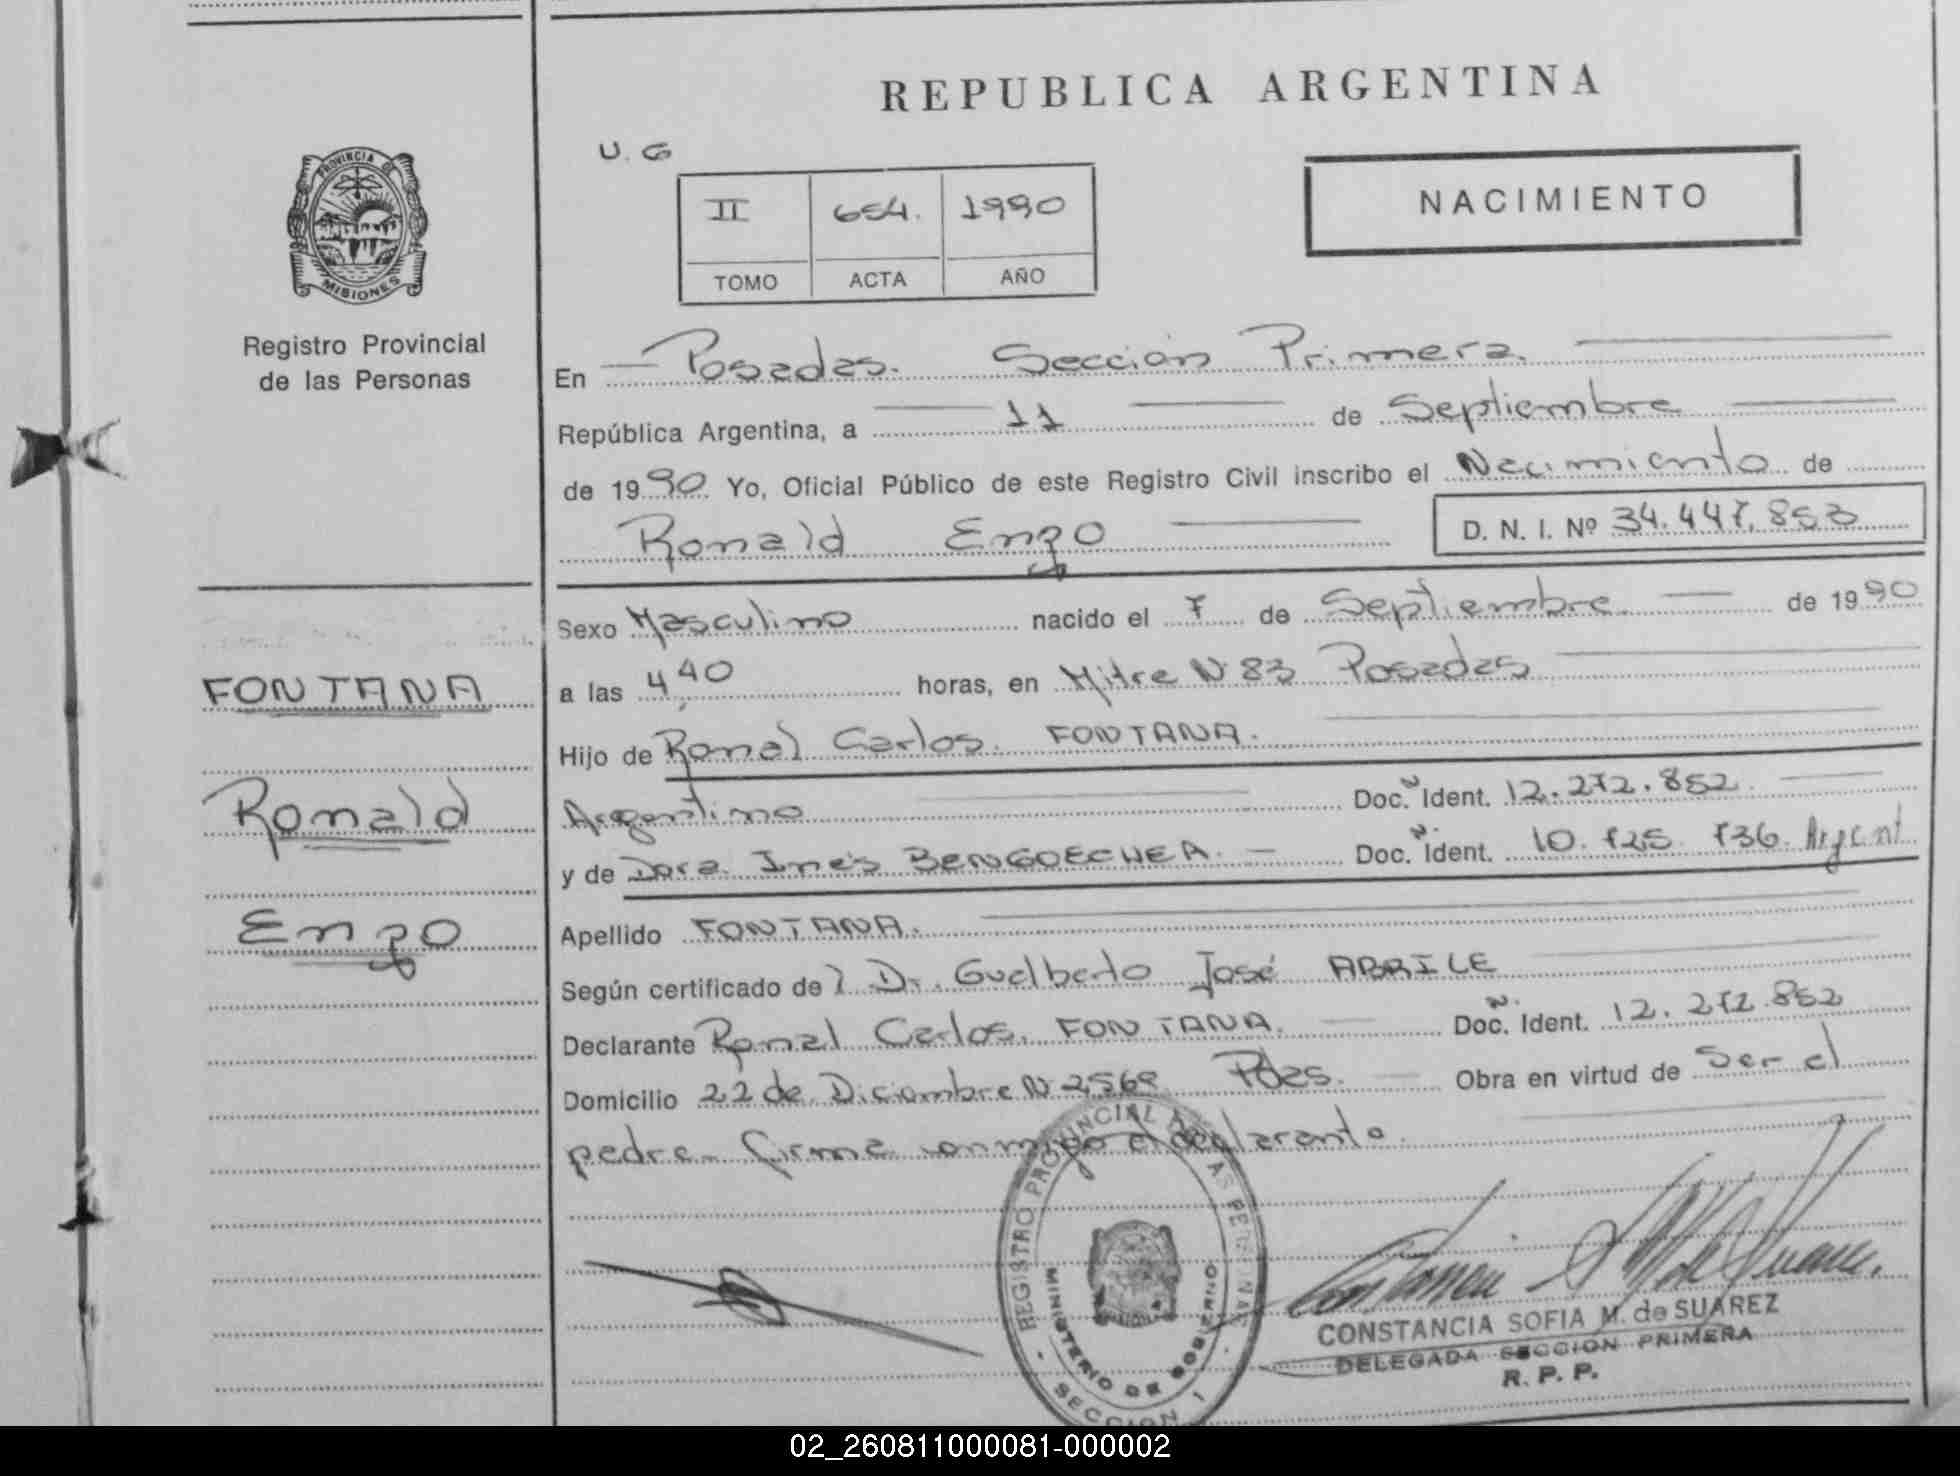 REPUBLICA ARGENTINA
U. G
II 654. 1990
TOMO ACTA AÑO
NACIMIENTO
PROVINCIA DE
MISIONES
Registro Provincial
de las Personas
En Posadas. Sección Primera.
República Argentina, a 11 de Septiembre
de 1990 Yo, Oficial Público de este Registro Civil inscribo el Nacimiento de
Ronald Enzo D. N. I. Nº 34.447.853
Sexo Masculino nacido el 7 de Septiembre de 1990
a las 4,40 horas, en Mitre N 83 Posadas
Hijo de Ronal Carlos. FONTANA.
Argentino Doc. N Ident. 12.272.852.
y de Dora Inés BENGOECHEA. Doc. N. Ident. 10.725.736. Argent.
Apellido FONTANA.
Según certificado del Dr. Gualberto José ABRILE
Declarante Ronal Carlos. FONTANA. Doc. N. Ident. 12.272.852
Domicilio 22 de Diciembre N 2569 Pdas. Obra en virtud de Ser el
padre. firma conmigo el declarante.
FONTANA
Ronald
Enzo
REGISTRO PROVINCIAL DE LAS PERSONAS
MINISTERIO DE GOBIERNO
SECCION 1
CONSTANCIA SOFIA M. de SUAREZ
DELEGADA SECCION PRIMERA
R. P. P.
02_260811000081-000002